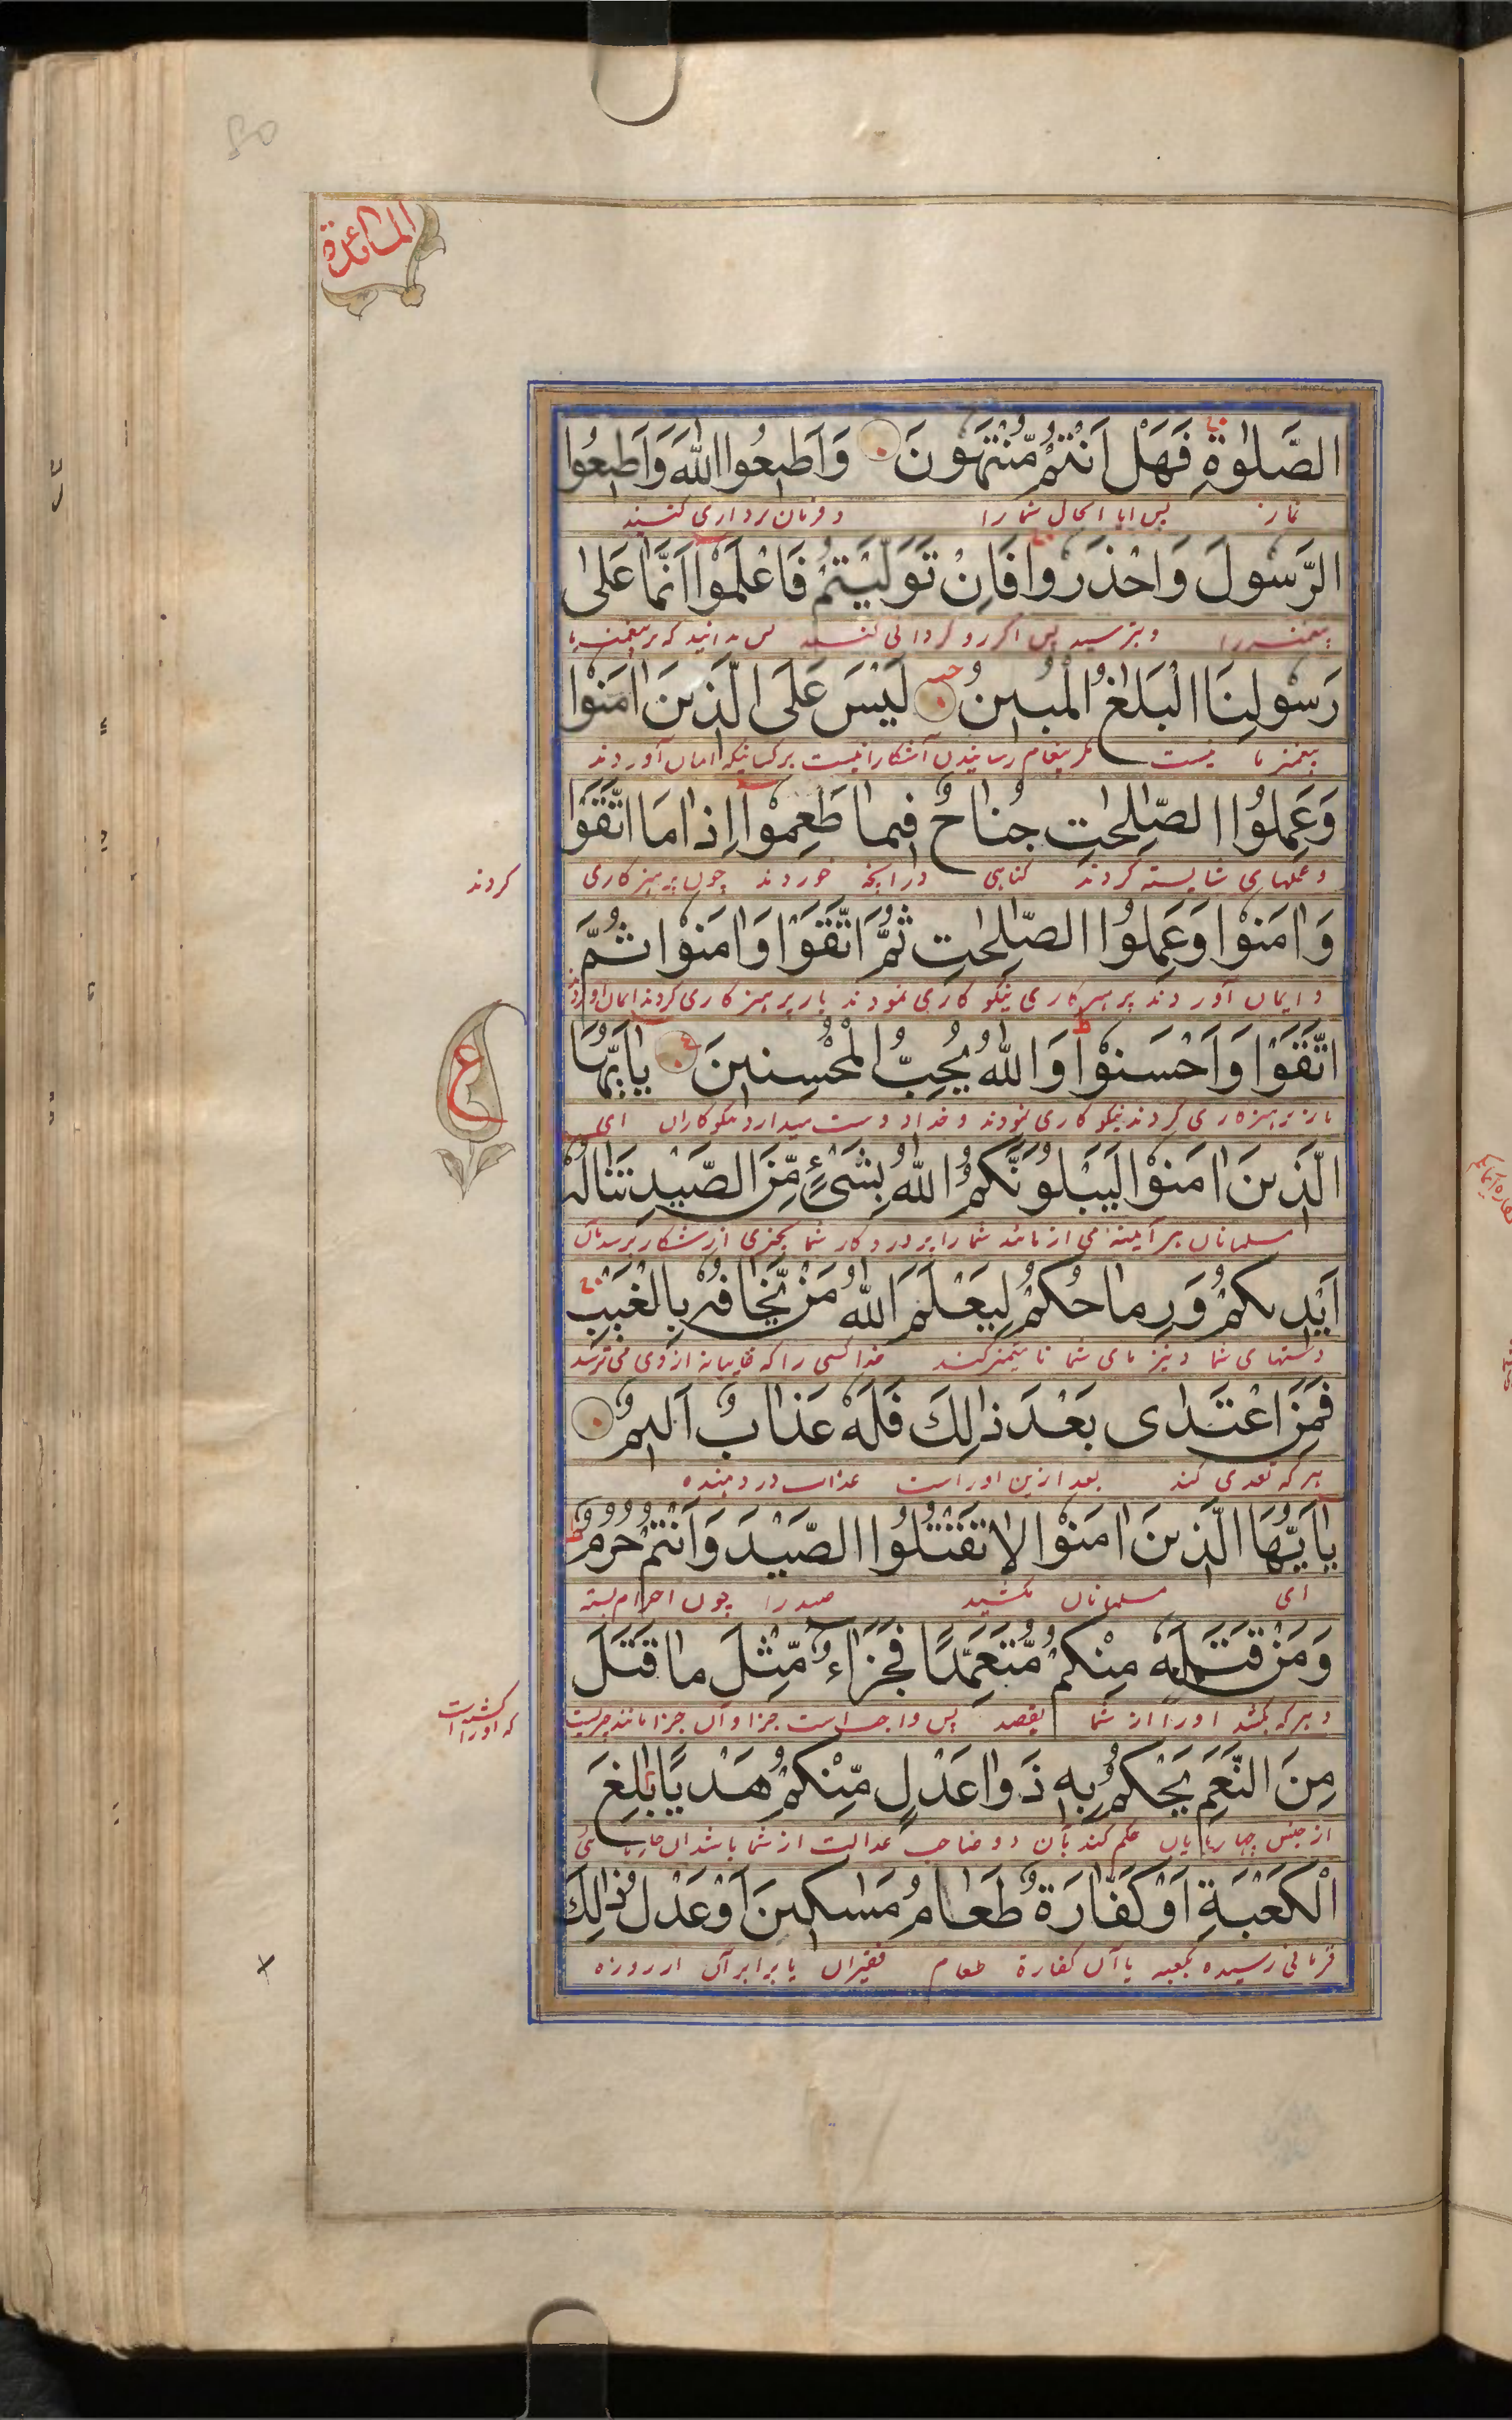 80
المائدة
الصَّلٰوةِ فَهَلْ اَنْتُمْ مُّنْتَهُوْنَ وَاَطِيْعُوا اللّٰهَ وَاَطِيْعُوا
نماز پس آیا الحال شما را و فرمان برداری کنید
الرَّسُوْلَ وَاحْذَرُوْا فَاِنْ تَوَلَّيْتُمْ فَاعْلَمُوْا اَنَّمَا عَلٰى
پیغمبر را و بترسید پس اگر رو گردانی کنید پس بدانید که بر پیغمبر ما
رَسُوْلِنَا الْبَلٰغُ الْمُبِيْنُ لَيْسَ عَلَى الَّذِيْنَ اٰمَنُوْا
پیغمبر ما نیست مگر پیغام رسانیدن آشکارا نیست بر کسانیکه ایمان آوردند
وَعَمِلُوا الصّٰلِحٰتِ جُنَاحٌ فِيْمَا طَعِمُوْا اِذَا مَا اتَّقَوْا
و عملهای شایسته کردند گناهی در آنچه خوردند چون پرهیزکاری
کردند
وَاٰمَنُوْا وَعَمِلُوا الصّٰلِحٰتِ ثُمَّ اتَّقَوْا وَاٰمَنُوْا ثُمَّ
و ایمان آوردند پرهیزکاری نیکوکاری نمودند باز پرهیزکاری کردند ایمان آوردند
اتَّقَوْا وَاَحْسَنُوْا وَاللّٰهُ يُحِبُّ الْمُحْسِنِيْنَ يٰاَيُّهَا
باز پرهیزکاری کردند نیکوکاری نمودند و خدا دوست میدارد نیکوکاران ای
ع
الَّذِيْنَ اٰمَنُوْا لَيَبْلُوَنَّكُمُ اللّٰهُ بِشَيْءٍ مِّنَ الصَّيْدِ تَنَالُهٗ
مسلمانان هر آینه می ازماند شما را پروردکار شما بچیزی از شکار برسد بآن
اَيْدِيْكُمْ وَرِمَاحُكُمْ لِيَعْلَمَ اللّٰهُ مَنْ يَّخَافُهٗ بِالْغَيْبِ
دستهای شما و نیزهای شما تا متمیز کند خدا کسی را که غایبانه از وی می ترسد
فَمَنِ اعْتَدٰى بَعْدَ ذٰلِكَ فَلَهٗ عَذَابٌ اَلِيْمٌ
هر که تعدی کند بعد ازین او راست عذاب دردهنده
يٰاَيُّهَا الَّذِيْنَ اٰمَنُوْا لَا تَقْتُلُوا الصَّيْدَ وَاَنْتُمْ حُرُمٌ
ای مسلمانان مکشید صید را چون احرام بسته
وَمَنْ قَتَلَهٗ مِنْكُمْ مُّتَعَمِّدًا فَجَزَاءٌ مِّثْلُ مَا قَتَلَ
و هر که بکشد او را از شما بقصد پس واجب است جزا و آن جزا مانند چیزیست
که او را کشته است
مِنَ النَّعَمِ يَحْكُمُ بِهٖ ذَوَا عَدْلٍ مِّنْكُمْ هَدْيًا بٰلِغَ
از جنس چهارپایان حکم کند بآن دو صاحب عدالت از شما باشد آن
الْكَعْبَةِ اَوْ كَفَّارَةٌ طَعَامُ مَسٰكِيْنَ اَوْ عَدْلُ ذٰلِكَ
قربانی رسیده بکعبه یا آن کفارة طعام فقیران یا برابر آن از روزه